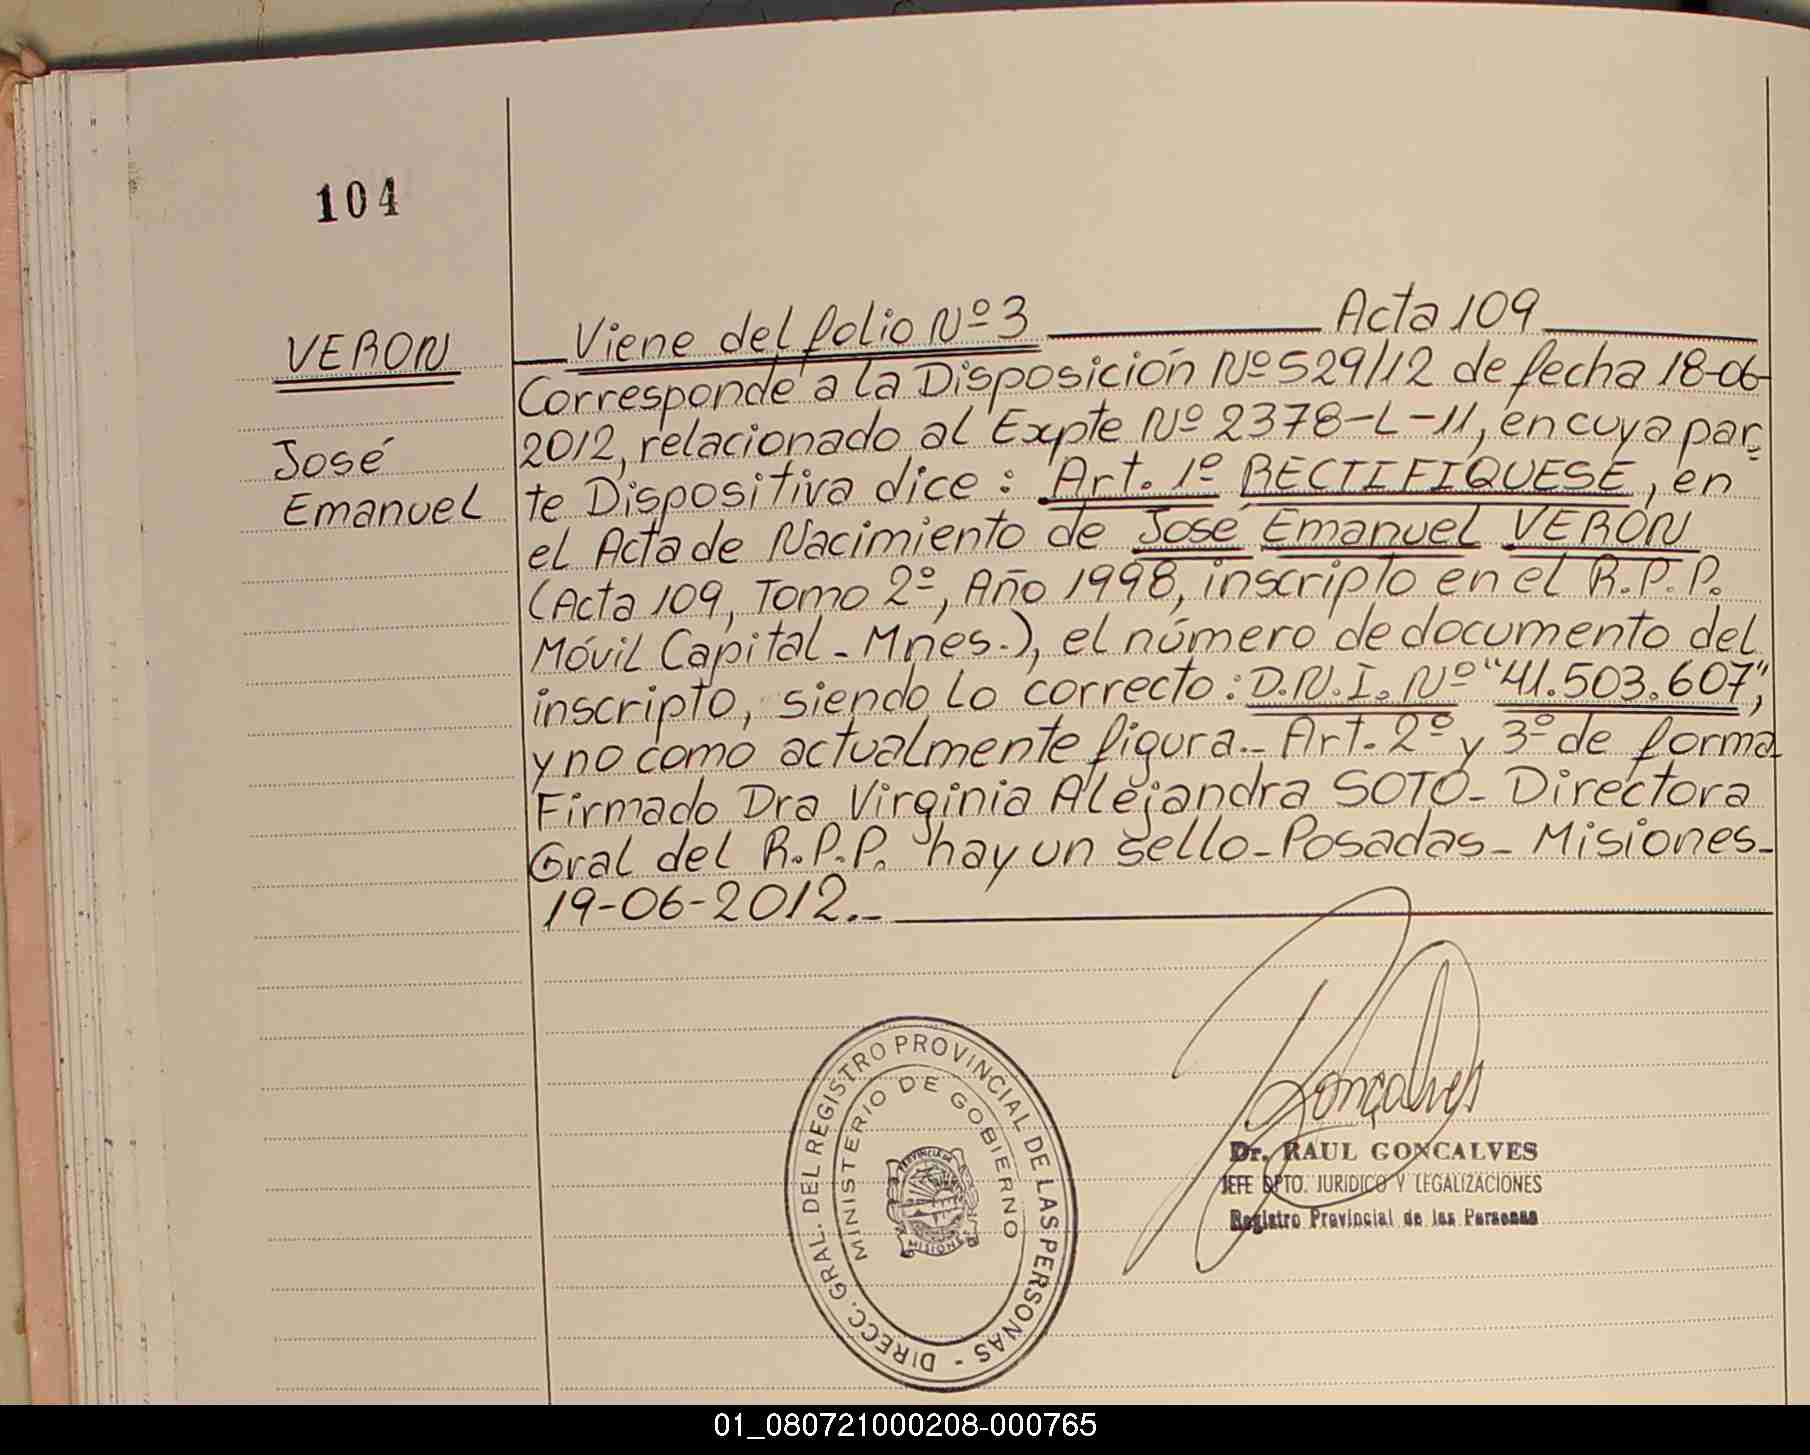 104
VERON
José
Emanuel
Viene del folio Nº 3 Acta 109
Corresponde a la Disposición Nº 529/12 de fecha 18-06-
2012, relacionado al Expte Nº 2378-L-11, en cuya par-
te Dispositiva dice: Art. 1º RECTIFIQUESE, en
el Acta de Nacimiento de José Emanuel VERON
(Acta 109, Tomo 2º, Año 1998, inscripto en el R.P.P.
Móvil Capital - Mnes.), el número de documento del
inscripto, siendo lo correcto: D.N.I. Nº "41.503.607",
y no como actualmente figura.- Art. 2º y 3º de forma
Firmado Dra Virginia Alejandra SOTO - Directora
Gral del R.P.P. hay un sello - Posadas - Misiones -
19-06-2012.-
DIRECC. GRAL. DEL REGISTRO PROVINCIAL DE LAS PERSONAS -
MINISTERIO DE GOBIERNO
PROVINCIA DE
MISIONES
Gonçalves
Dr. RAUL GONCALVES
JEFE DPTO. JURIDICO Y LEGALIZACIONES
Registro Provincial de las Personas
01_080721000208-000765